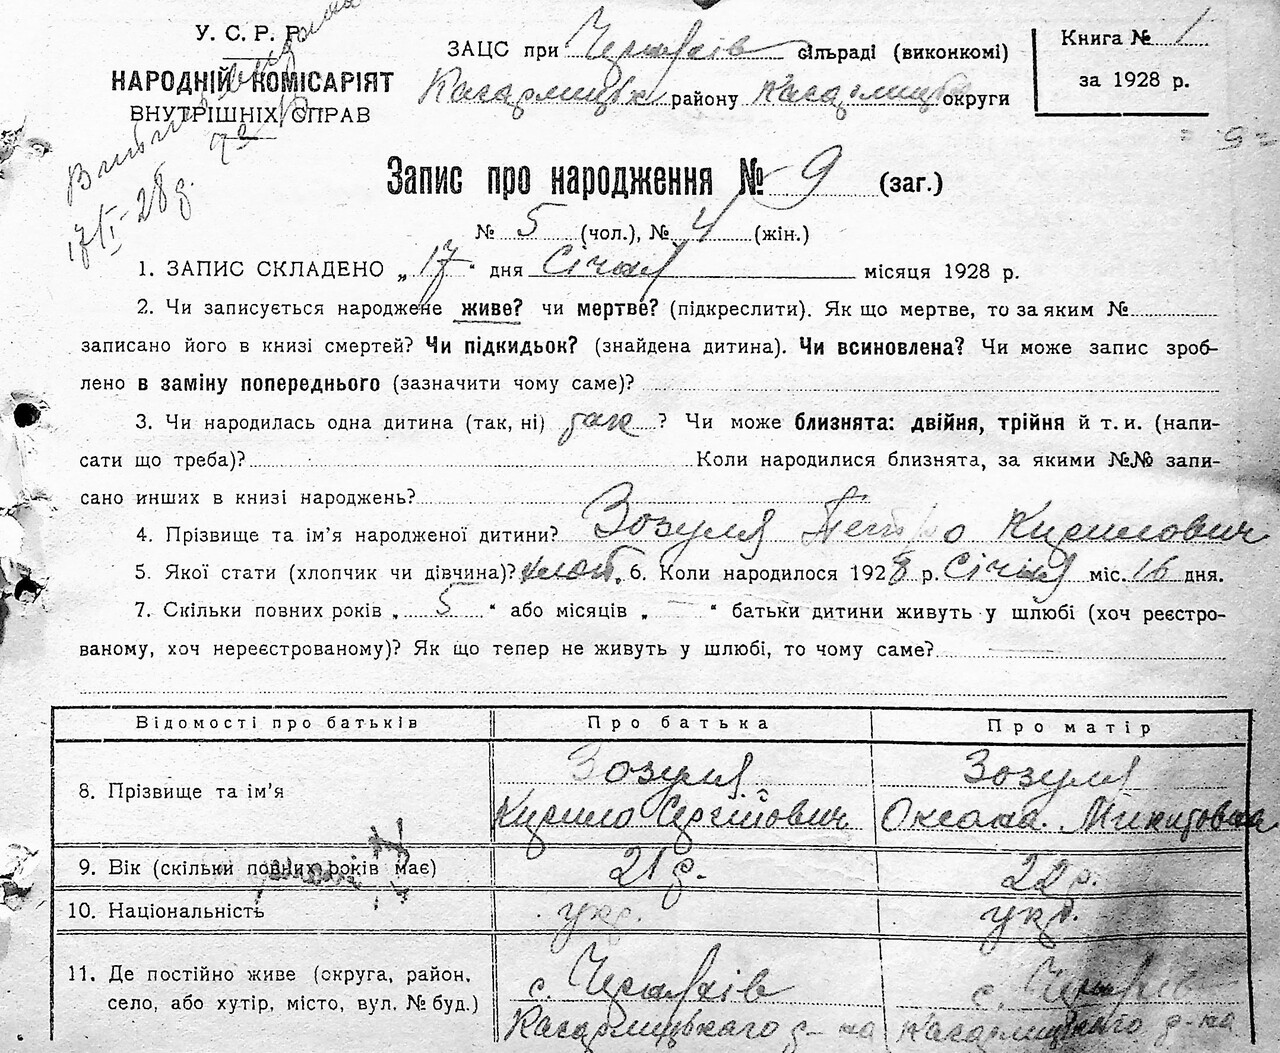 У. С. Р. Р.
НАРОДНІЙ КОМІСАРІЯТ
ВНУТРІШНІХ СПРАВ
17/I-28р.
ЗАЦС при сільраді (виконкомі)
району округи
Книга № 1
за 1928 р.
Запис про народження № 9 (заг.)
№ 5 (чол.), № 4 (жін.)
1. ЗАПИС СКЛАДЕНО „ 17 “ дня Січня місяця 1928 р.
2. Чи записується народжене живе? чи мертве? (підкреслити). Як що мертве, то за яким №
записано його в книзі смертей? Чи підкидьок? (знайдена дитина). Чи всиновлена? Чи може запис зроб-
лено в заміну попереднього (зазначити чому саме)?
3. Чи народилась одна дитина (так, ні) так ? Чи може близнята: двійня, трійня й т. и. (напи-
сати що треба)? Коли народилися близнята, за якими №№ запи-
сано инших в книзі народжень?
4. Прізвище та ім’я народженої дитини? Зозуля Петро Кирилович
5. Якої стати (хлопчик чи дівчина)? хлоп. 6. Коли народилося 1928 р. Січня міс. 16 дня.
7. Скільки повних років „ 5 “ або місяців „ — “ батьки дитини живуть у шлюбі (хоч реєстро-
ваному, хоч нереєстрованому)? Як що тепер не живуть у шлюбі, то чому саме?
Відомості про батьків Про батька Про матір
8. Прізвище та ім’я Зозуля Кирило Сергійович Зозуля Оксана Микитовна
9. Вік (скільки повних років має) 21 р. 22 р.
10. Національність укр. укр.
11. Де постійно живе (округа, район,
село, або хутір, місто, вул. № буд.)